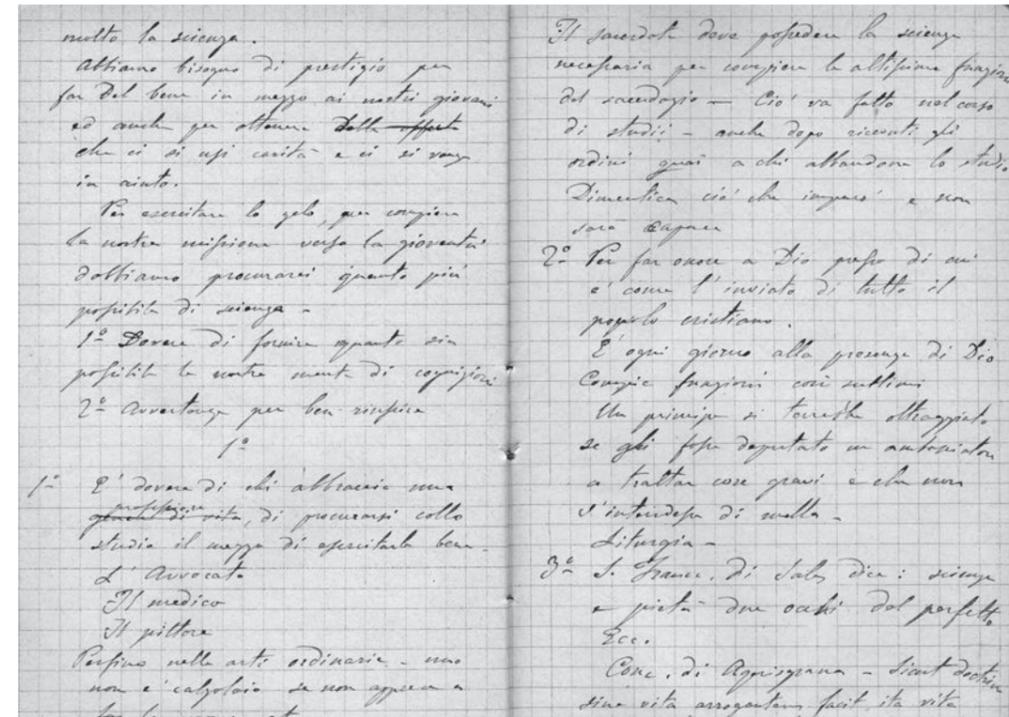 molto la scienza.
Abbiamo bisogno di prestigio per
far del bene in mezzo ai nostri giovani
ed anche per ottenere delle offerte
che ci si usi carità e ci si venga
in aiuto.
Per esercitare lo zelo, per compiere
la nostra missione verso la gioventù
dobbiamo procurarci quanto più
possibile di scienza -
1º Dovere di fornire quanto sia
possibile la nostra mente di cognizioni
2º Avvertenze per ben riuscire
1º
1º È dovere di chi abbraccia una
professione
genere di vita, di procurarsi collo
studio il mezzo di esercitarla bene -
L'Avvocato
Il medico
Il pittore
Persino nelle arti ordinarie - uno
non è calzolaio se non apprese a
far le scarpe
Il sacerdote deve possedere la scienza
necessaria per compiere le altissime funzioni
del sacerdozio - Ciò va fatto nel corso
di studii - anche dopo ricevuti gli
ordini guai a chi abbandona lo studio
Dimentica ciò che imparò e non
sarà capace
2º Per far onore a Dio presso di cui
è come l'inviato di tutto il
popolo cristiano.
È ogni giorno alla presenza di Dio
Compie funzioni così sublimi
Un principe si terrebbe oltraggiato
se gli fosse deputato un ambasciatore
a trattar cose gravi e che non
s'intendesse di nulla -
Liturgia -
3º S. Franc. di Sales dice: scienza
e pietà due occhi del perfetto
Ecc.
Conc. di Aquisgrana - Sicut doctrina
sine vita arrogantem facit ita vita